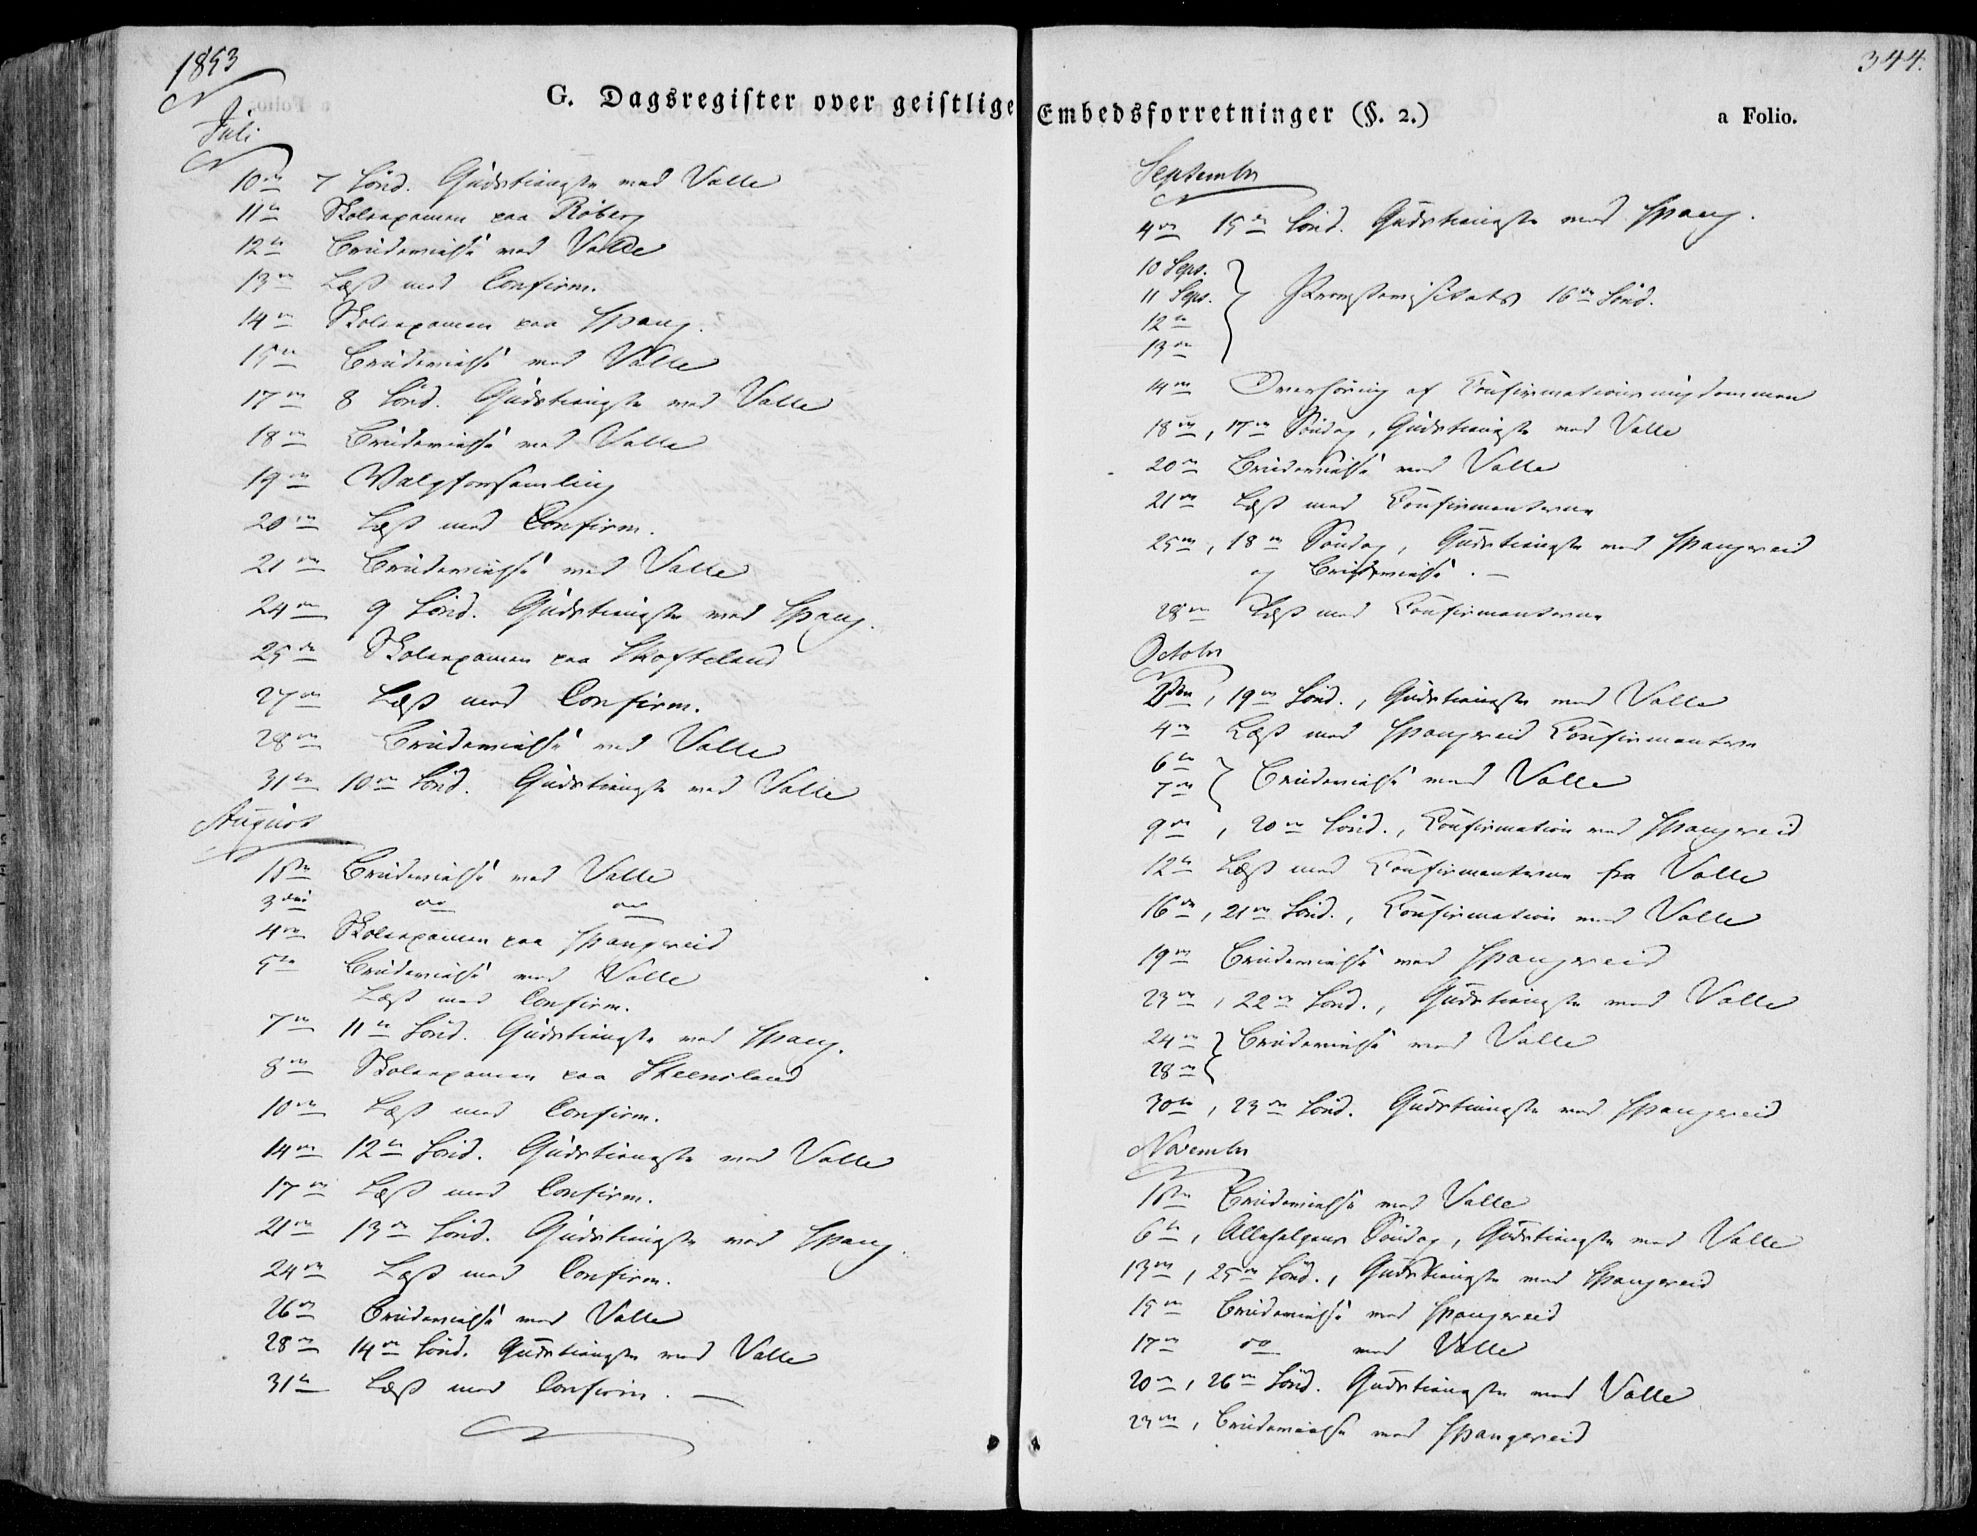 1853
G. Dagsregister over geistlige Embedsforretninger (§. 2.)
344.
a Folio.
Juli
10de 7 Sönd. Gudstieneste ved Valle
11te Skoleexamen paa Röberg
12te Brudevielse ved Valle
13de Læst med Confirm.
14de Skoleexamen paa Spang.
15de Brudevielse ved Valle
17de 8 Sönd. Gudstieneste ved Valle
18de Brudevielse ved Valle
19de Valgforsamling
20de Læst med Confirm.
21de Brudevielse ved Valle
24de 9 Sönd. Gudstieneste ved Spang.
25de Skoleexamen paa Skofteland
27de Læst med Confirm.
28de Brudevielse ved Valle
31te 10de Sönd. Gudstieneste ved Valle
August
1ste Brudevielse ved Valle
3die do do
4de Skoleexamen paa Spangereid
5te Brudevielse ved Valle
Læst med Confirm.
7de 11te Sönd. Gudstieneste ved Spang.
8de Skoleexamen paa Steensland
10de Læst med Confirm.
14de 12te Sönd. Gudstieneste ved Valle
17de Læst med Confirm.
21de 13de Sönd. Gudstieneste ved Spang.
24de Læst med Confirm.
26de Brudevielse ved Valle
28de 14de Sönd. Gudstieneste ved Valle
31te Læst med Confirm. —
September
4de 15de Sönd. Gudstieneste ved Spang.
10 Sept.
11 Sept. Provstevisitats 16de Sönd.
12te
13de
14de Overhöring af Confirmationsungdommen
18de, 17de Söndag, Gudstieneste ved Valle
20de Brudevielse ved Valle
21de Læst med Confirmanterne
25de, 18de Söndag, Gudstieneste ved Spangereid
og Brudevielse. —
28de Læst med Confirmanterne
October
2den, 19de Sönd., Gudstieneste ved Valle
4de Læst med Spangereid Confirmanter
6te
7de Brudevielse ved Valle
9de, 20de Sönd., Confirmation ved Spangereid
12te Læst med Confirmanterne fra Valle
16de, 21de Sönd., Confirmation ved Valle
19de Brudevielse ved Spangereid
23de, 22de Sönd., Gudstieneste ved Valle
24de Brudevielse ved Valle
28de
30te, 23de Sönd. Gudstieneste ved Spangereid
November
1ste Brudevielse ved Valle
6te, Allehelgens Söndag, Gudstieneste ved Valle
13de, 25de Sönd., Gudstieneste ved Spangereid
15de Brudevielse ved Spangereid
17de do ved Valle
20de, 26de Sönd. Gudstieneste ved Valle
23de, Brudevielse ved Spangereid